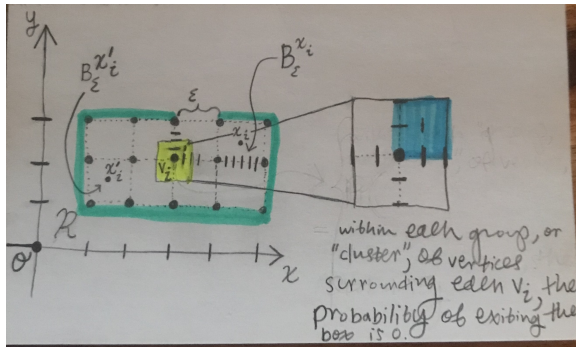 y
B_ε^{x'_i}
ε
B_ε^{x_i}
x_i
x'_i
v_i
R
O
x
within each group, or
"cluster", of vertices
surrounding each v_i, the
probability of exiting the
box is 0.